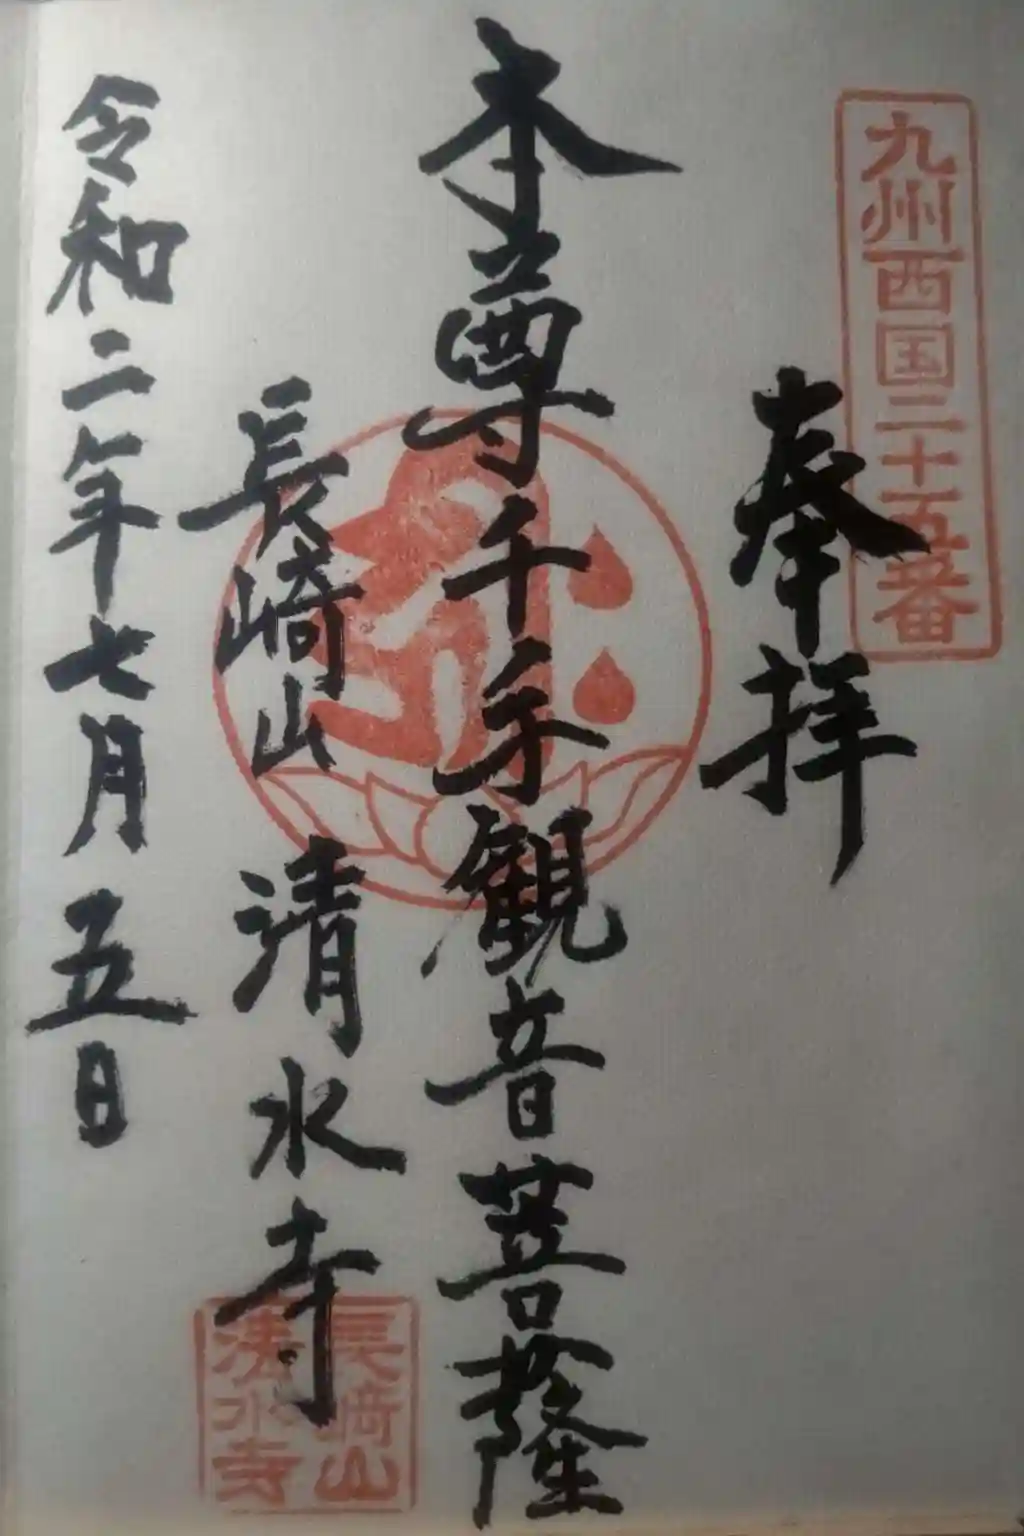 九州西国二十五番
奉拝
本尊千手観音菩薩
長崎山 清水寺
令和二年七月五日
長崎山
清水寺